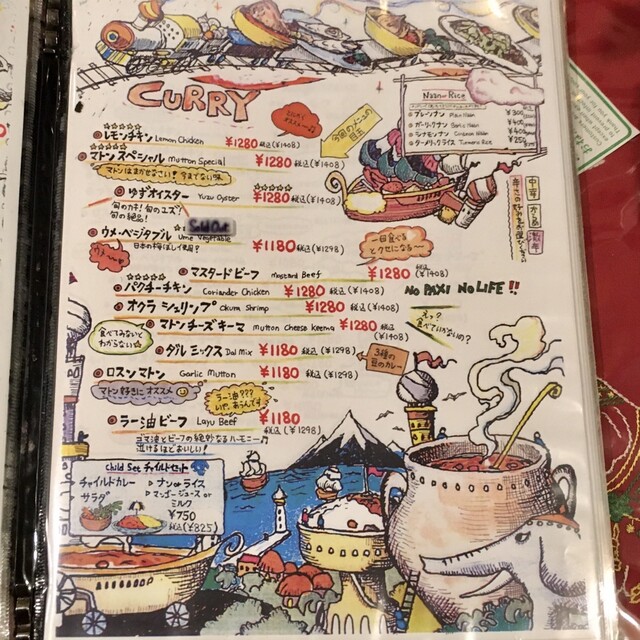 CURRY
Naan or Rice
プレーンナン Plain Naan ¥300
ガーリックナン Garlic Naan ¥400
シナモンナン Cinnamon Naan ¥400
ターメリックライス Turmeric Rice ¥250
今回のメニューの目玉
☆☆☆☆☆
レモンチキン Lemon Chicken ¥1280 税込(¥1408)
☆☆☆☆☆
マトンスペシャル Mutton Special ¥1280 税込(¥1408)
マトンはまかせなさい！今までない味
ゆずオイスター Yuzu Oyster ¥1280 税込(¥1408)
旬のカキ！旬のユズ？
旬の絶品！
Sold Out
ウメ・ベジタブル Ume Vegetable ¥1180 税込(¥1298)
一回食べると
クセになる〜
マスタードビーフ Mustard Beef ¥1280 税込(¥1408)
パクチーチキン Coriander Chicken ¥1280 税込(¥1408)
NO PAXI NO LIFE!!
オクラシュリンプ Okura Shrimp ¥1280 税込(¥1408)
マトンチーズキーマ Mutton Cheese Keema ¥1280 税込(¥1408)
えっ？
食べていかないの？
食べてみないと
わからない
ダルミックス Dal Mix ¥1180 税込(¥1298)
3種の
豆のカレー
ロスンマトン Garlic Mutton ¥1180 税込(¥1298)
マトン好きにオススメ
ラー油???
いや、あうんです
ラー油ビーフ Layu Beef ¥1180
税込(¥1298)
ゴマ油とビーフの絶妙なハーモニー♪
泣けるほどおいしい！
Child Set チャイルドセット
チャイルドカレー
サラダ
▷ナン or ライス
▷マンゴージュース or
ミルク
¥750
税込(¥825)